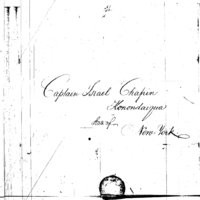 Captain Israel Chapin
Honondaiqua
State of
New-York